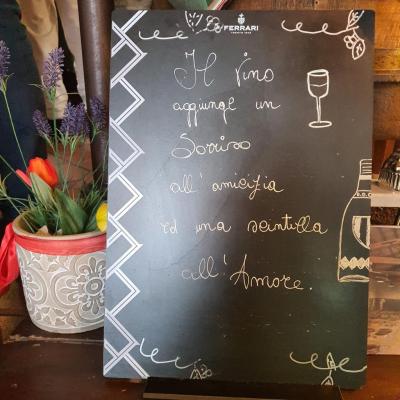 FERRARI
TRENTO 1902
Il vino
aggiunge un
Sorriso
all'amicizia
ed una scintilla
all'Amore.